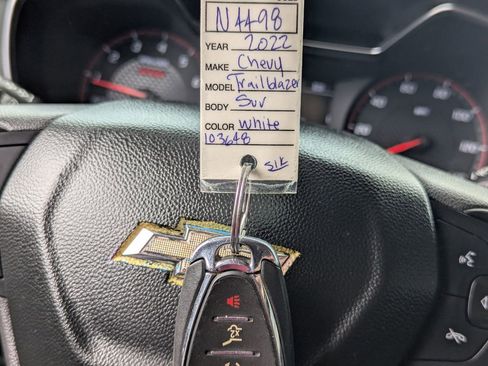 N4498
YEAR 2022
MAKE Chevy
MODEL Trailblazer
BODY Suv
COLOR White
103648